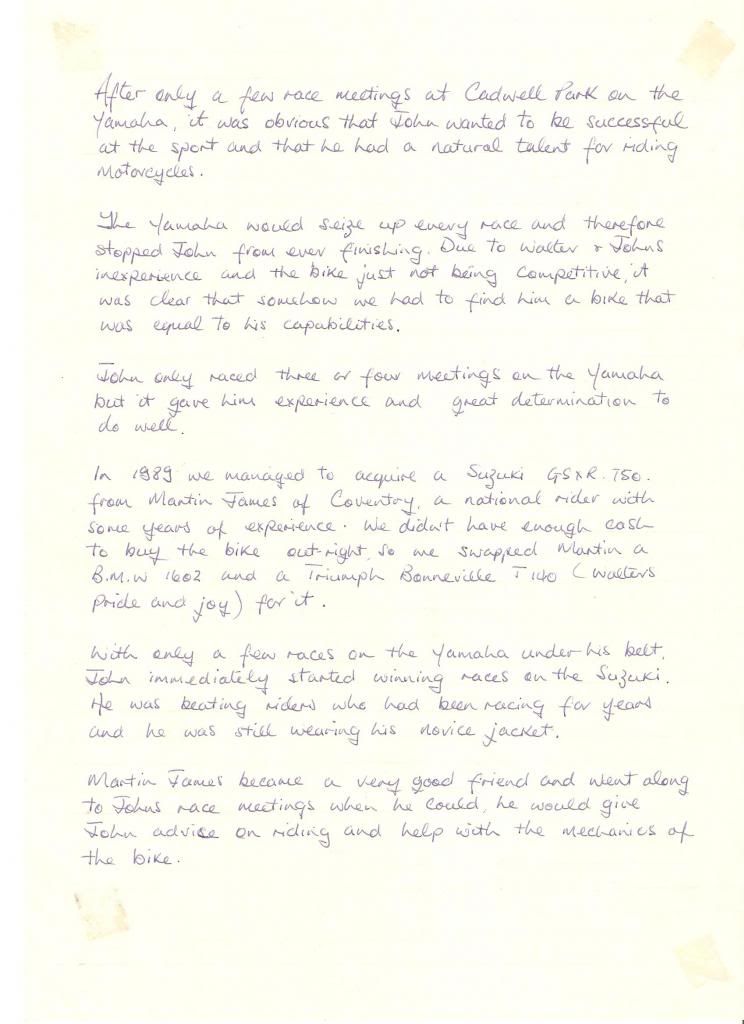 After only a few race meetings at Cadwell Park on the
Yamaha, it was obvious that John wanted to be successful
at the sport and that he had a natural talent for riding
Motorcycles.
The Yamaha would seize up every race and therefore
stopped John from ever finishing. Due to Walter & Johns
inexperience and the bike just not being competitive, it
was clear that somehow we had to find him a bike that
was equal to his capabilities.
John only raced three or four meetings on the Yamaha
but it gave him experience and great determination to
do well.
In 1989 we managed to acquire a Suzuki GSXR.750.
from Martin James of Coventry, a national rider with
some years of experience. We didn't have enough cash
to buy the bike out-right, so we swapped Martin a
B.M.W 1602 and a Triumph Bonneville T140 (Walters
pride and joy) for it.
With only a few races on the Yamaha under his belt,
John immediately started winning races on the Suzuki.
He was beating riders who had been racing for years
and he was still wearing his novice jacket.
Martin James became a very good friend and went along
to Johns race meetings when he could, he would give
John advice on riding and help with the mechanics of
the bike.